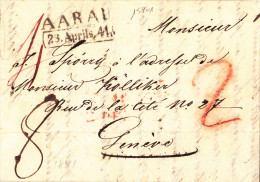 AARAU
23. Aprils. 41.
Monsieur
Spörri à l'adresse de
Monsieur Kolliker
Rue de la Cité No. 27
Genève
8
2